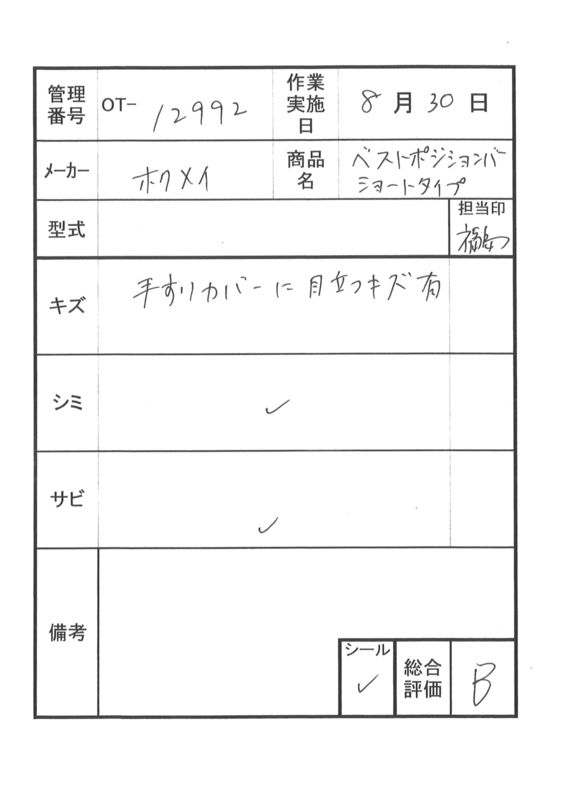 管理番号 OT- 12992 作業実施日 8月30日
メーカー ホクメイ 商品名 ベストポジションバー
ショートタイプ
型式 担当印
キズ 手すりカバーに目立つキズ有
シミ ✓
サビ ✓
備考
シール ✓ 総合評価 B